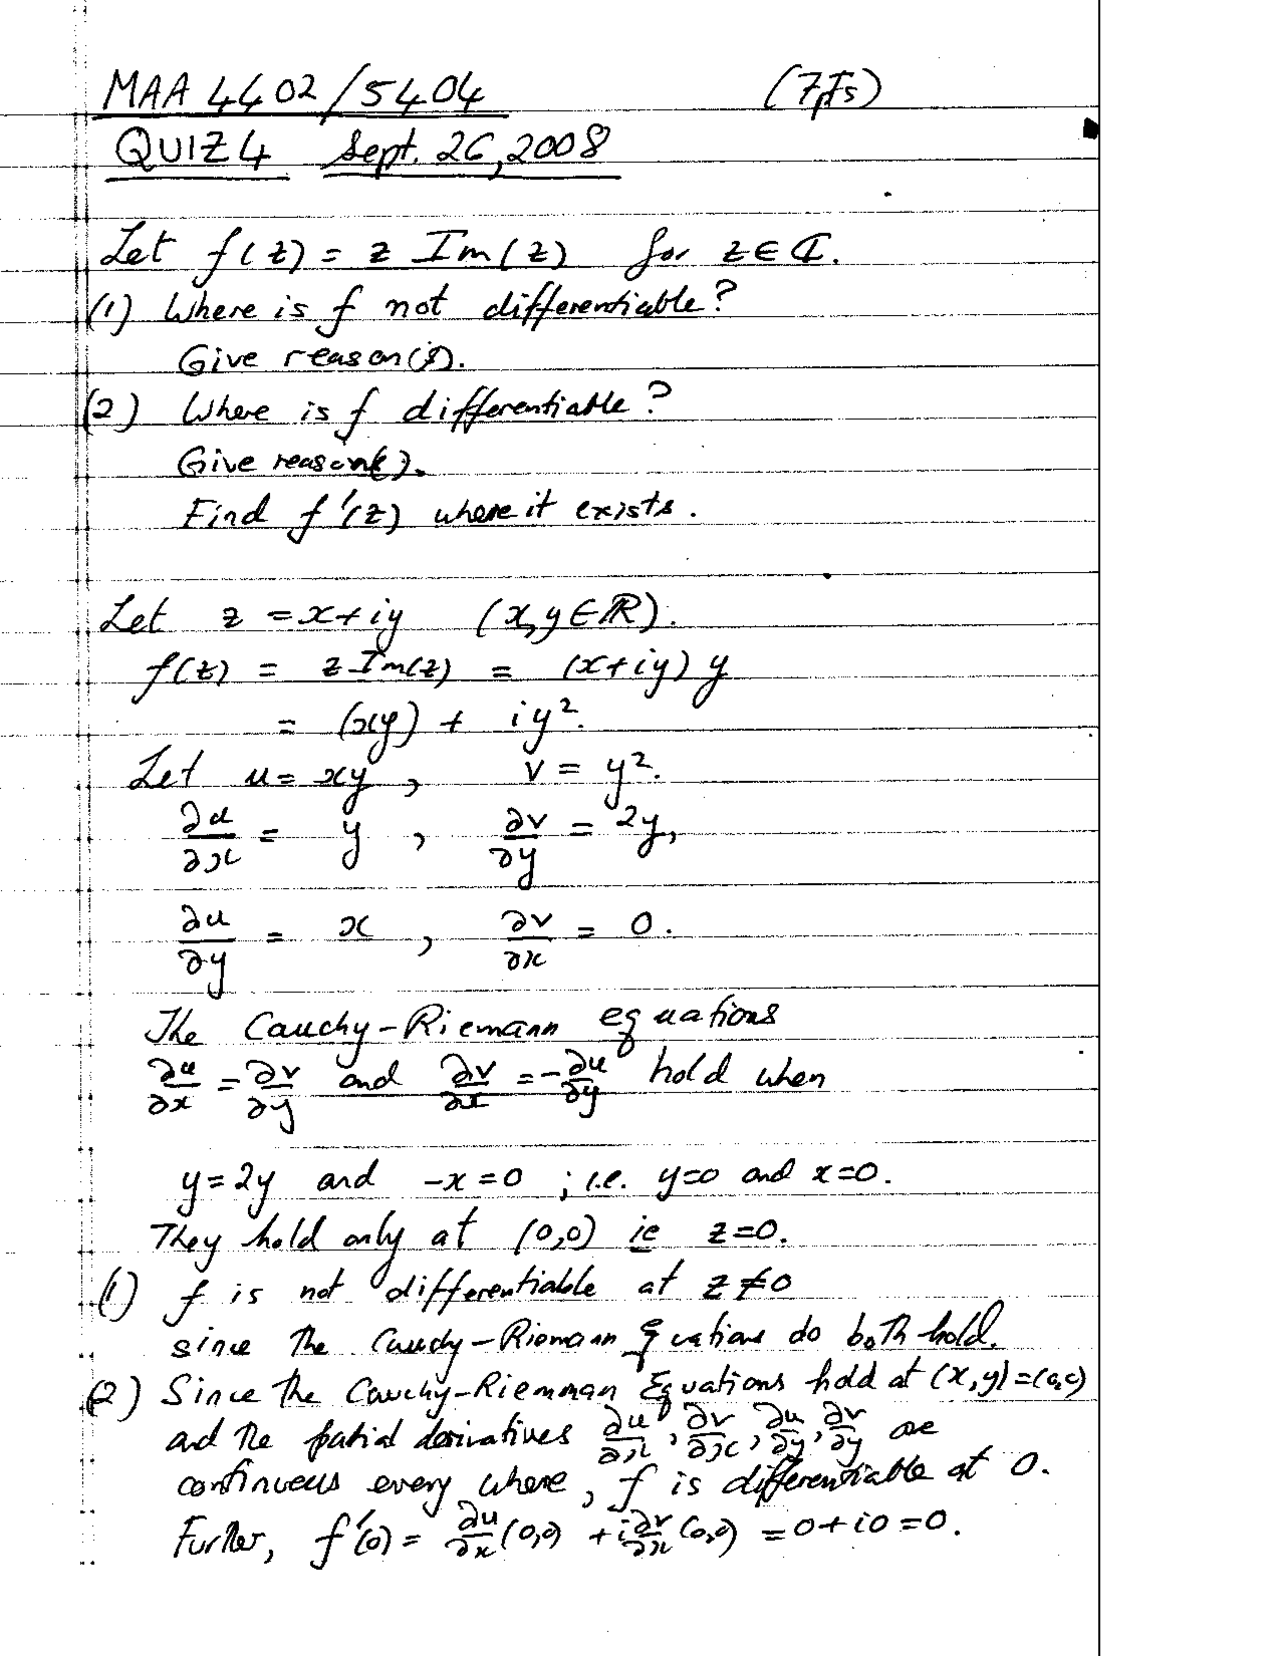 MAA 4402/5404 (7pts)
QUIZ 4 Sept. 26, 2008
Let f(z) = z Im(z) for z ∈ ℂ.
(1) Where is f not differentiable?
Give reason(s).
(2) Where is f differentiable?
Give reason(s).
Find f'(z) where it exists.
Let z = x+iy (x,y ∈ ℝ).
f(z) = z Im(z) = (x+iy) y
= (xy) + iy².
Let u = xy, v = y².
∂u/∂x = y, ∂v/∂y = 2y,
∂u/∂y = x, ∂v/∂x = 0.
The Cauchy-Riemann equations
∂u/∂x = ∂v/∂y and ∂v/∂x = -∂u/∂y hold when
y = 2y and -x = 0 ; i.e. y=0 and x=0.
They hold only at (0,0) ie z=0.
(1) f is not differentiable at z ≠ 0
since the Cauchy-Riemann Equations do both hold.
(2) Since the Cauchy-Riemman Equations hold at (x,y)=(0,0)
and the patial derivatives ∂u/∂x, ∂v/∂x, ∂u/∂y, ∂v/∂y are
continuous every where, f is differentiable at 0.
Further, f'(0) = ∂u/∂x (0,0) + i ∂v/∂x (0,0) = 0 + i0 = 0.